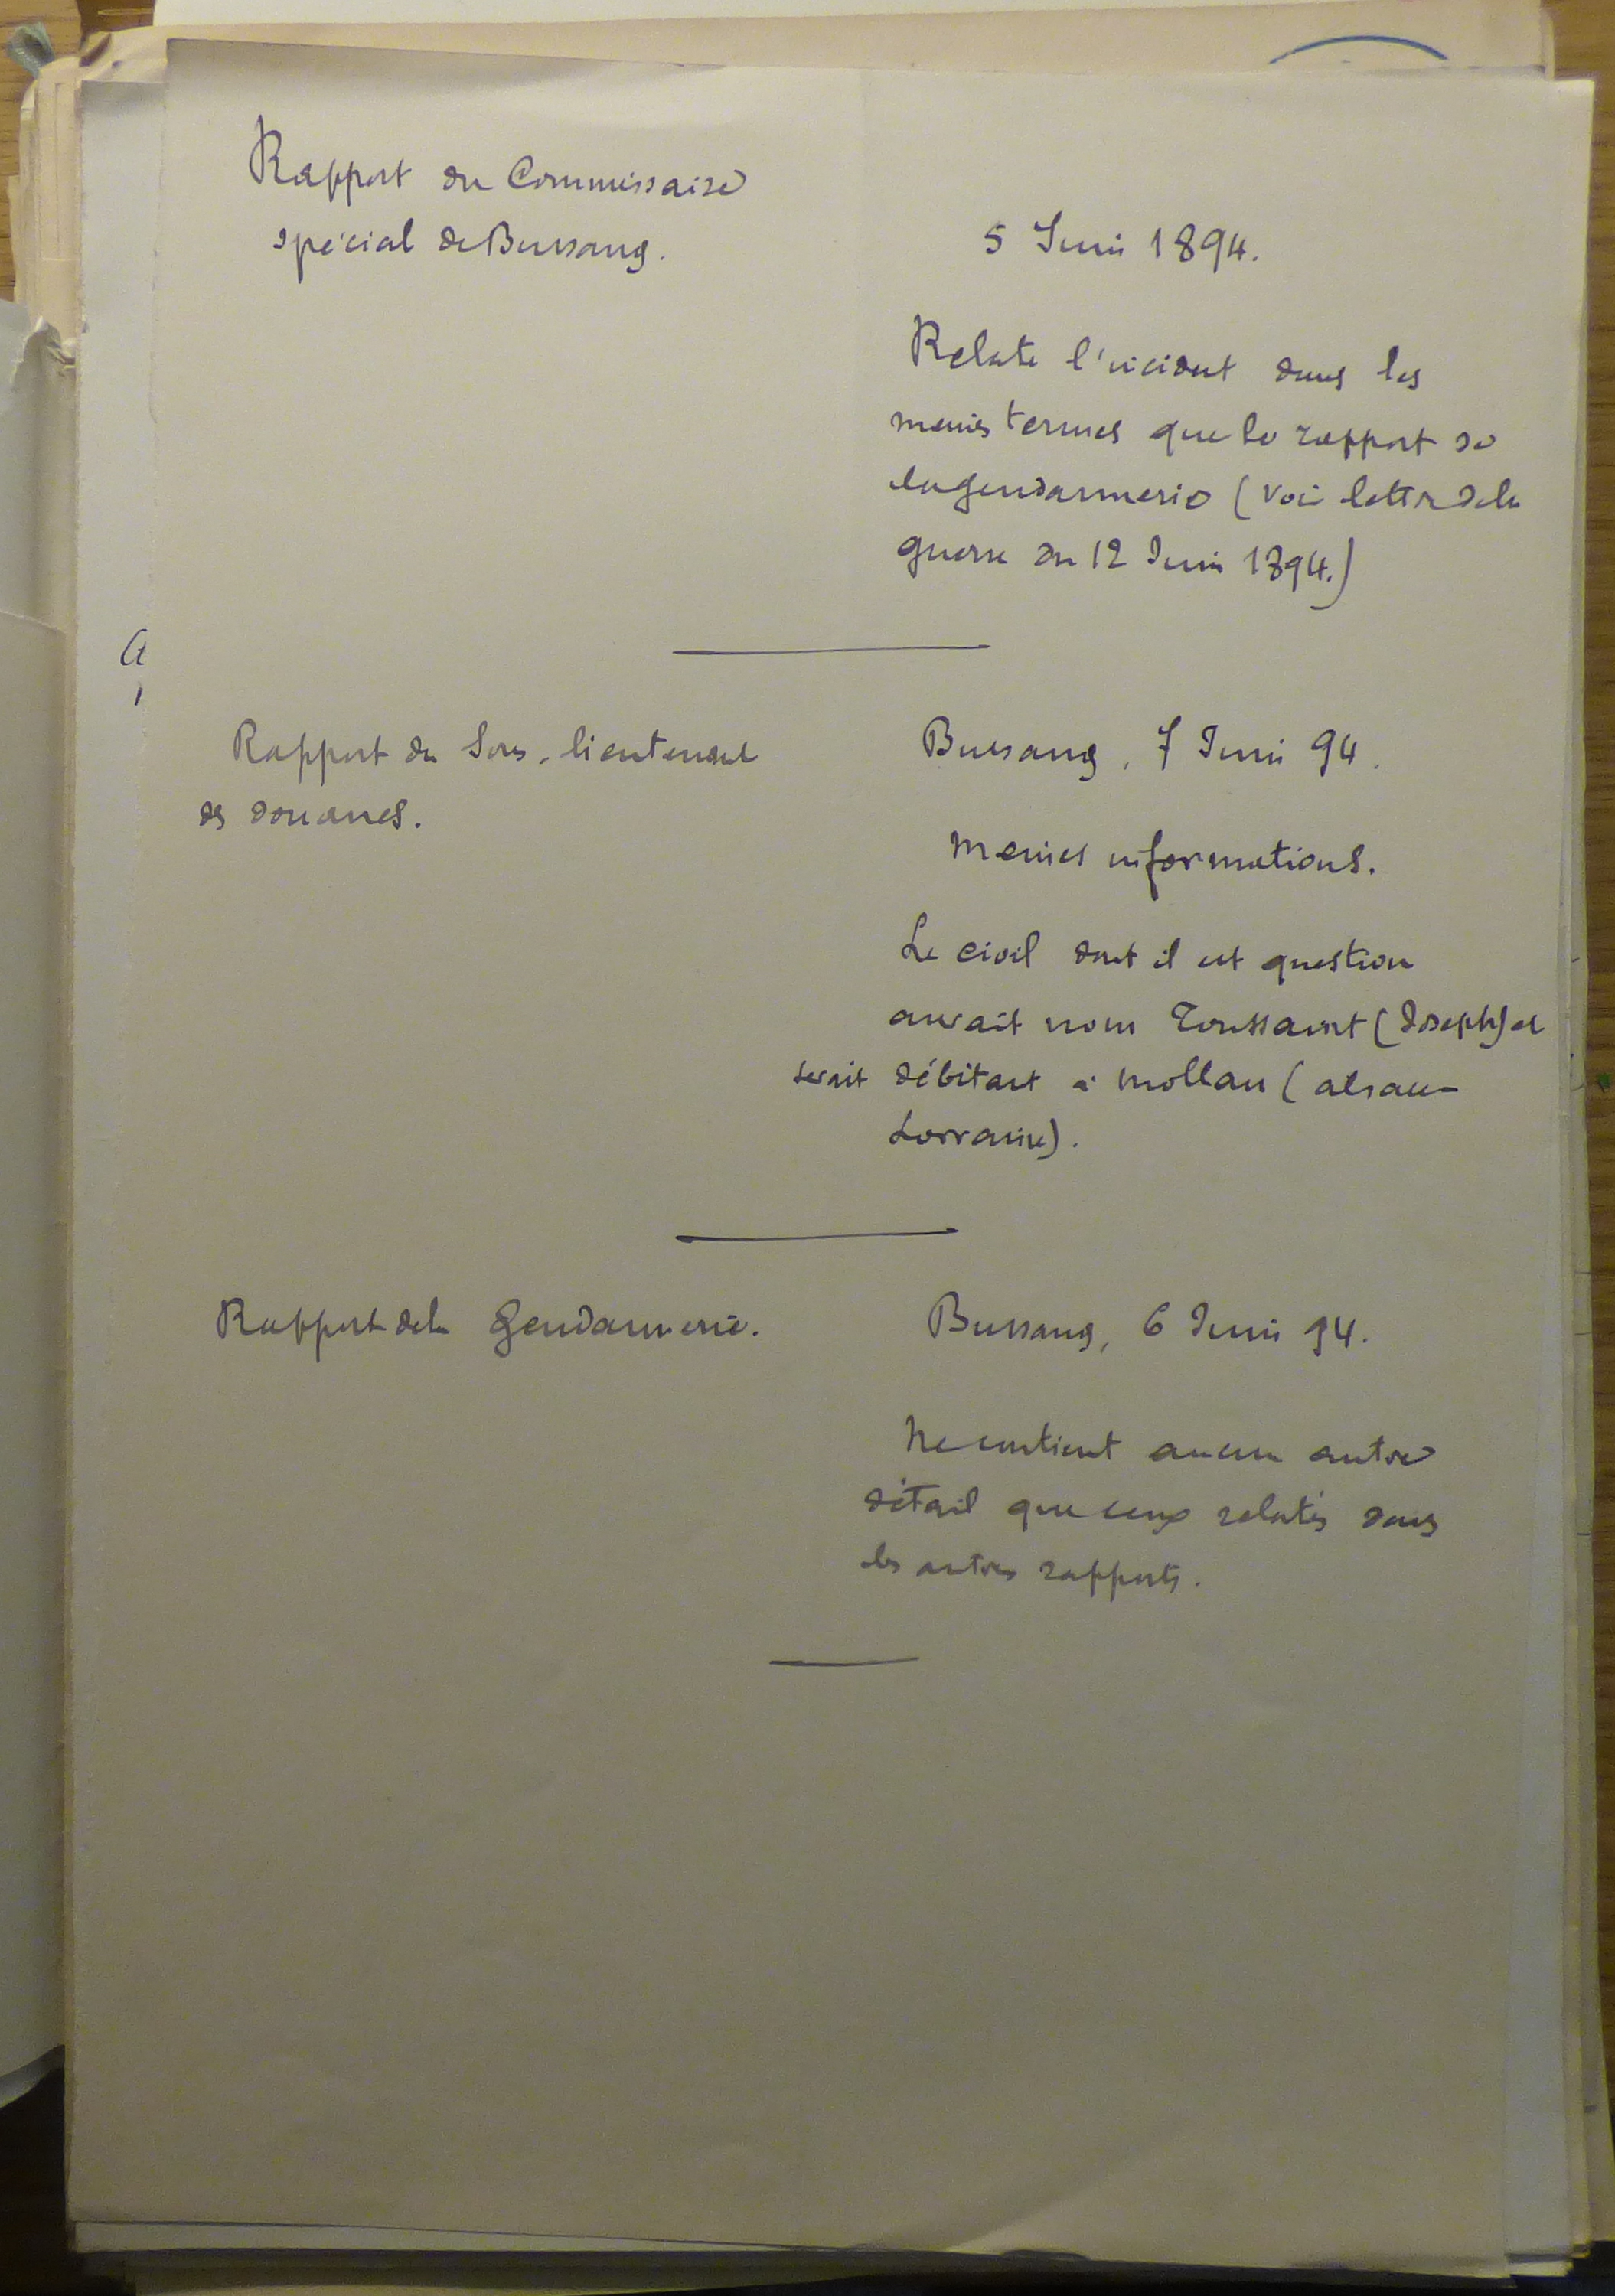 Rapport du Commissaire
spécial de Bussang.
5 Juin 1894.
Relate l'incident dans les
mêmes termes que le rapport de
la gendarmerie (voir lettre de la
guerre du 12 Juin 1894.)
Rapport du Sous-lieutenant
des douanes.
Bussang, 7 Juin 94.
Mêmes informations.
Le civil dont il est question
aurait nom Toussaint (Joseph) et
serait débitant à Mollau (Alsace-
Lorraine).
Rapport de la Gendarmerie.
Bussang, 6 Juin 94.
Ne contient aucun autre
détail que ceux relatés dans
les autres rapports.